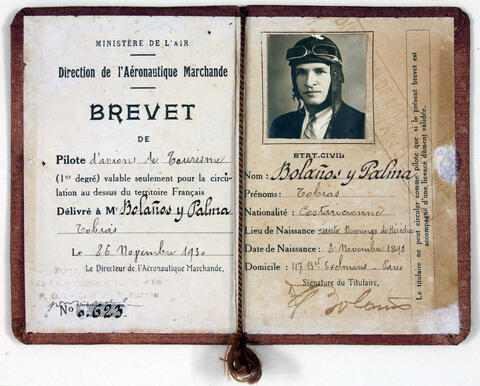 MINISTÈRE DE L'AIR
Direction de l'Aéronautique Marchande
BREVET
DE
Pilote d'avion de Tourisme
(1er degré) valable seulement pour la circu-
lation au dessus du territoire Français
Délivré à Mr Bolaños y Palma
Tobias
Le 26 Novembre 1930
Le Directeur de l'Aéronautique Marchande,
No 0.623
ETAT-CIVIL
Nom : Bolaños y Palma
Prénoms : Tobias
Nationalité : Costaricienne
Lieu de Naissance : Santo Domingo de Hérédia
Date de Naissance : 2 Novembre 1892
Domicile : 117 Bd Exelmans - Paris
Signature du Titulaire,
Bolaños
Le titulaire ne peut circuler comme pilote que si le présent brevet est
accompagné d'une licence dûment validée.